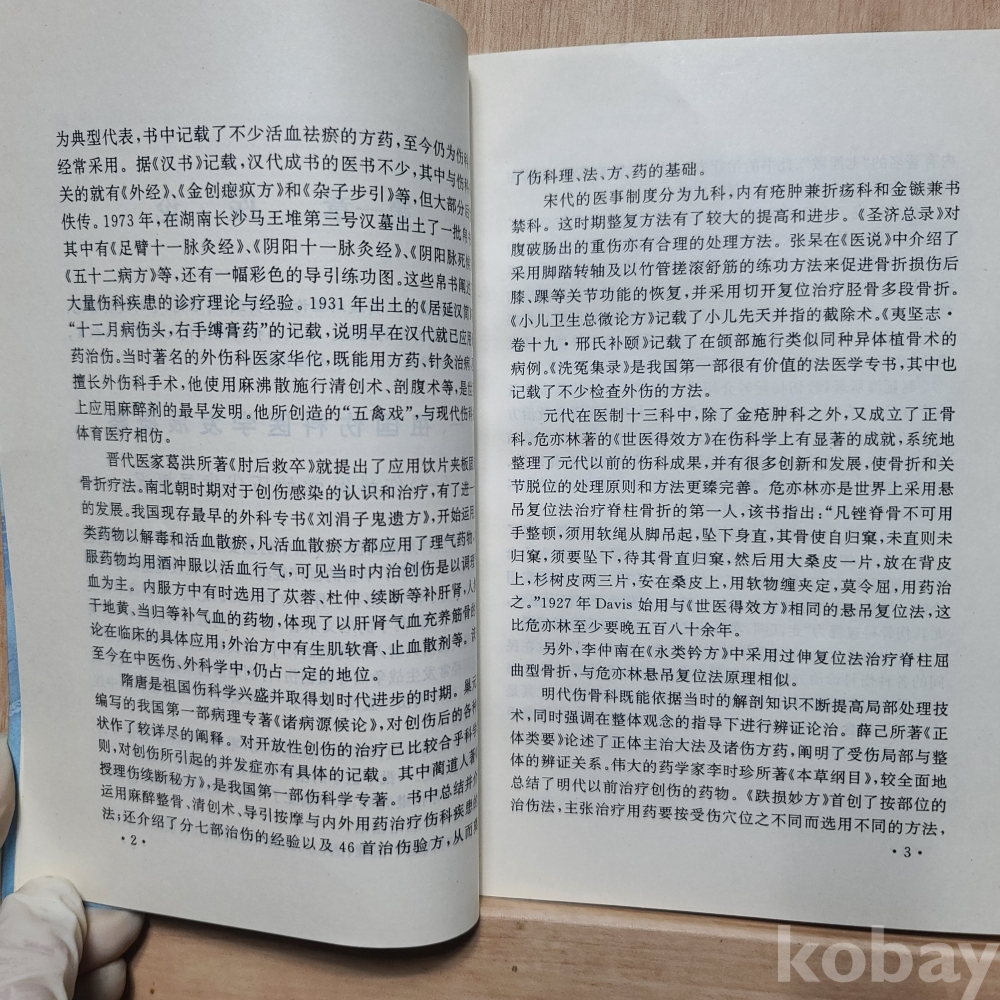 为典型代表，书中记载了不少活血祛瘀的方药，至今仍为伤科
经常采用。据《汉书》记载，汉代成书的医书不少，其中与伤科
关的就有《外经》、《金创瘛疭方》和《杂子步引》等，但大部分后
佚传。1973年，在湖南长沙马王堆第三号汉墓出土了一批帛
其中有《足臂十一脉灸经》、《阴阳十一脉灸经》、《阴阳脉死候
《五十二病方》等，还有一幅彩色的导引练功图。这些帛书阐述
大量伤科疾患的诊疗理论与经验。1931年出土的《居延汉简》
“十二月病伤头，右手缚膏药”的记载，说明早在汉代就已应用
药治伤。当时著名的外伤科医家华佗，既能用方药、针灸治病
擅长外伤科手术，他使用麻沸散施行清创术、剖腹术等，是世
上应用麻醉剂的最早发明。他所创造的“五禽戏”，与现代伤科
体育医疗相仿。
晋代医家葛洪所著《肘后救卒》就提出了应用饮片夹板固
骨折疗法。南北朝时期对于创伤感染的认识和治疗，有了进一
的发展。我国现存最早的外科专书《刘涓子鬼遗方》，开始运用
类药物以解毒和活血散瘀，凡活血散瘀方都应用了理气药物，
服药物均用酒冲服以活血行气，可见当时内治创伤是以调理
血为主。内服方中有时选用了苁蓉、杜仲、续断等补肝肾，人
干地黄、当归等补气血的药物，体现了以肝肾气血充养筋骨的
论在临床的具体应用；外治方中有生肌软膏、止血散剂等。该
至今在中医伤、外科学中，仍占一定的地位。
隋唐是祖国伤科学兴盛并取得划时代进步的时期。巢元
编写的我国第一部病理专著《诸病源候论》，对创伤后的各种
状作了较详尽的阐释。对开放性创伤的治疗已比较合乎科学
则，对创伤所引起的并发症亦有具体的记载。其中蔺道人著
授理伤续断秘方》，是我国第一部伤科学专著。书中总结并介
运用麻醉整骨、清创术、导引按摩与内外用药治疗伤科疾患的
法；还介绍了分七部治伤的经验以及46首治伤验方，从而
·2·
了伤科理、法、方、药的基础。
宋代的医事制度分为九科，内有疮肿兼折疡科和金镞兼书
禁科。这时期整复方法有了较大的提高和进步。《圣济总录》对
腹破肠出的重伤亦有合理的处理方法。张杲在《医说》中介绍了
采用脚踏转轴及以竹管搓滚舒筋的练功方法来促进骨折损伤后
膝、踝等关节功能的恢复，并采用切开复位治疗胫骨多段骨折。
《小儿卫生总微论方》记载了小儿先天并指的截除术。《夷坚志·
卷十九·邢氏补颐》记载了在颌部施行类似同种异体植骨术的
病例。《洗冤集录》是我国第一部很有价值的法医学专书，其中也
记载了不少检查外伤的方法。
元代在医制十三科中，除了金疮肿科之外，又成立了正骨
科。危亦林著的《世医得效方》在伤科学上有显著的成就，系统地
整理了元代以前的伤科成果，并有很多创新和发展，使骨折和关
节脱位的处理原则和方法更臻完善。危亦林亦是世界上采用悬
吊复位法治疗脊柱骨折的第一人，该书指出：“凡锉脊骨不可用
手整顿，须用软绳从脚吊起，坠下身直，其骨使自归窠，未直则未
归窠，须要坠下，待其骨直归窠，然后用大桑皮一片，放在背皮
上，杉树皮两三片，安在桑皮上，用软物缠夹定，莫令屈，用药治
之。”1927年Davis始用与《世医得效方》相同的悬吊复位法，这
比危亦林至少要晚五百八十余年。
另外，李仲南在《永类钤方》中采用过伸复位法治疗脊柱屈
曲型骨折，与危亦林悬吊复位法原理相似。
明代伤骨科既能依据当时的解剖知识不断提高局部处理技
术，同时强调在整体观念的指导下进行辨证论治。薛己所著《正
体类要》论述了正体主治大法及诸伤方药，阐明了受伤局部与整
体的辨证关系。伟大的药学家李时珍所著《本草纲目》，较全面地
总结了明代以前治疗创伤的药物。《跌损妙方》首创了按部位的
治伤法，主张治疗用药要按受伤穴位之不同而选用不同的方法，
·3·
kobay